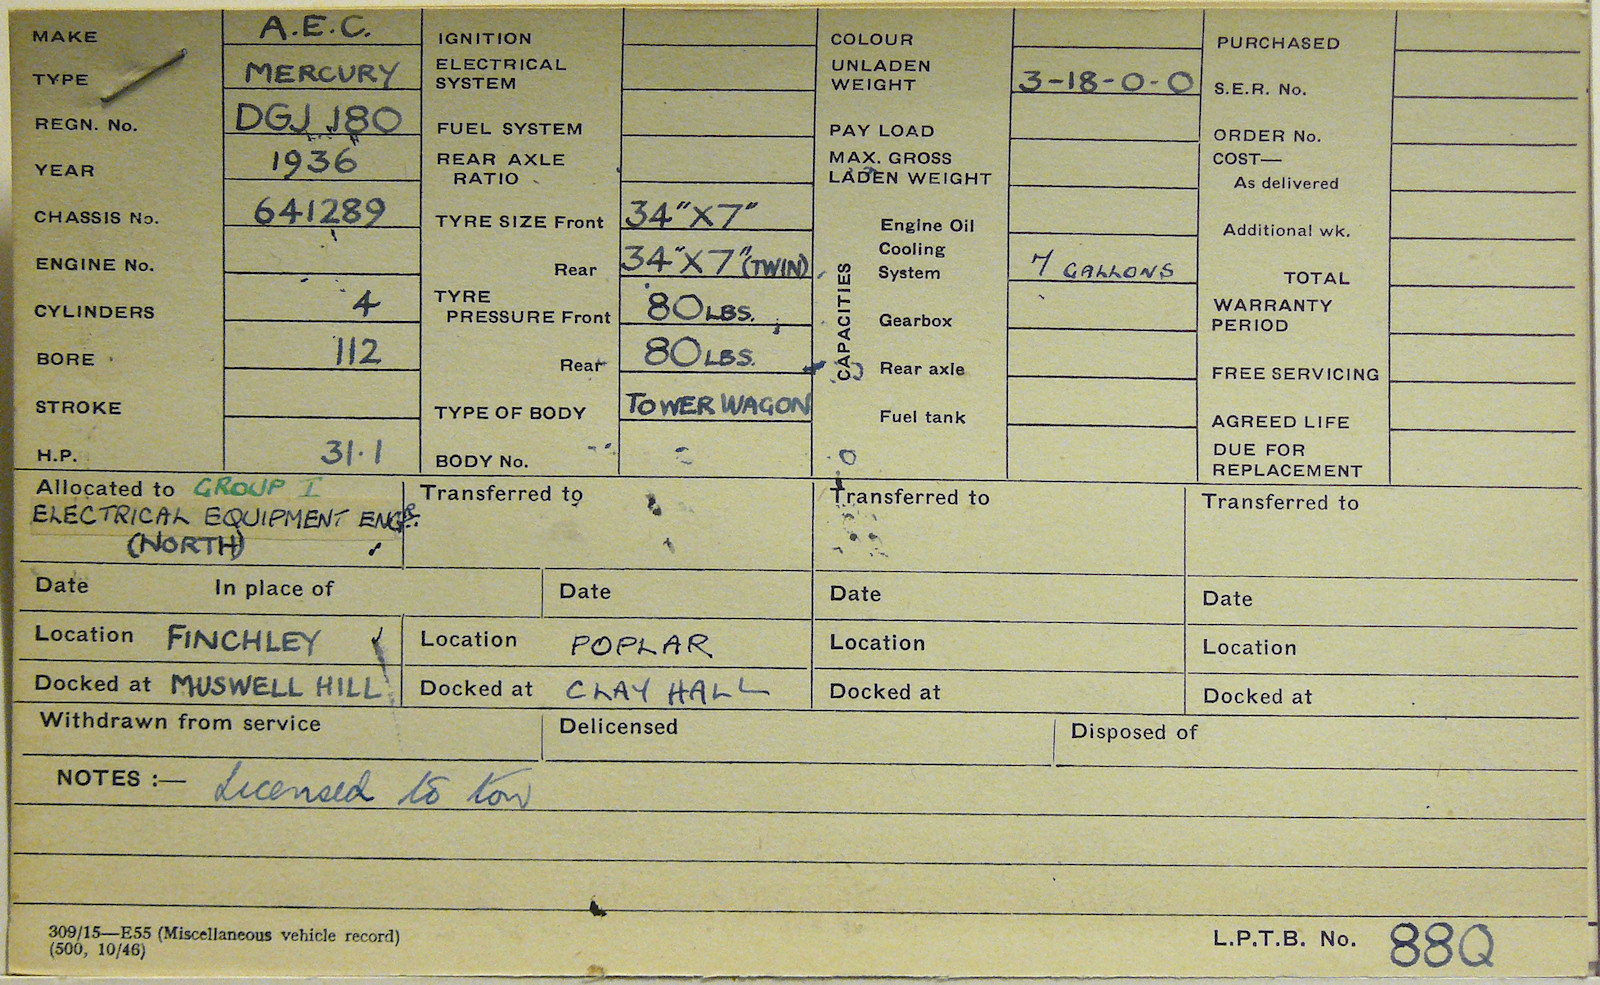 MAKE A.E.C.
TYPE MERCURY
REGN. No. DGJ 180
YEAR 1936
CHASSIS No. 641289
ENGINE No.
CYLINDERS 4
BORE 112
STROKE
H.P. 31.1
IGNITION
ELECTRICAL
SYSTEM
FUEL SYSTEM
REAR AXLE
RATIO
TYRE SIZE Front 34"X7"
Rear 34"X7"(TWIN)
TYRE
PRESSURE Front 80LBS.
Rear 80LBS.
TYPE OF BODY TOWER WAGON
BODY No.
COLOUR
UNLADEN
WEIGHT 3-18-0-0
PAY LOAD
MAX. GROSS
LADEN WEIGHT
CAPACITIES
Engine Oil
Cooling
System 7 GALLONS
Gearbox
Rear axle
Fuel tank
PURCHASED
S.E.R. No.
ORDER No.
COST—
As delivered
Additional wk.
TOTAL
WARRANTY
PERIOD
FREE SERVICING
AGREED LIFE
DUE FOR
REPLACEMENT
Allocated to GROUP I
ELECTRICAL EQUIPMENT ENGR.
(NORTH)
Transferred to
Transferred to
Transferred to
Date In place of
Date
Date
Date
Location FINCHLEY
Location POPLAR
Location
Location
Docked at MUSWELL HILL
Docked at CLAY HALL
Docked at
Docked at
Withdrawn from service
Delicensed
Disposed of
NOTES :— Licensed to tow
309/15—E55 (Miscellaneous vehicle record)
(500, 10/46)
L.P.T.B. No. 88Q